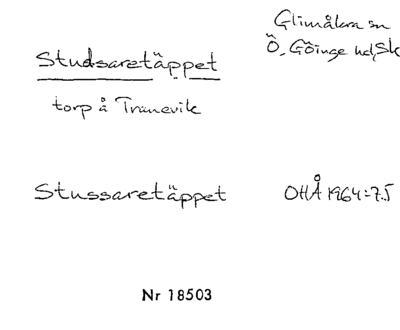 Glimåkra sn
Ö. Göinge hd, Sk
Studsaretäppet
torp å Tranevik
Stussaretäppet
OHÅ 1964:75
Nr 18503